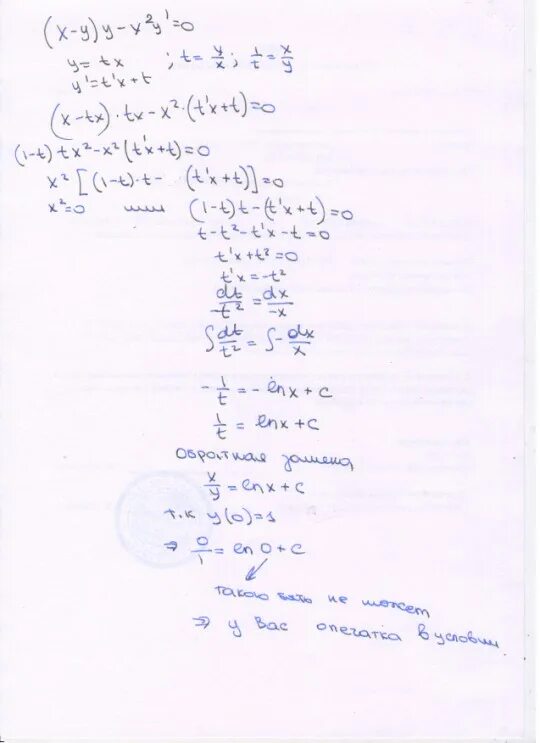 (x-y)y-x²y'=0
y=tx ; t=y/x ; 1/t=x/y
y'=t'x+t
(x-tx)·tx-x²·(t'x+t)=0
(1-t)tx²-x²(t'x+t)=0
x²[(1-t)·t-(t'x+t)]=0
x²=0 или (1-t)t-(t'x+t)=0
t-t²-t'x-t=0
t'x+t²=0
t'x=-t²
dt/-t²=dx/-x
∫dt/t²=∫-dx/x
-1/t=-lnx+c
1/t=lnx+c
Обратная замена
x/y=lnx+c
т.к y(0)=1
⇒ 0/1=ln0+c
такого быть не может
⇒ у Вас опечатка в условии